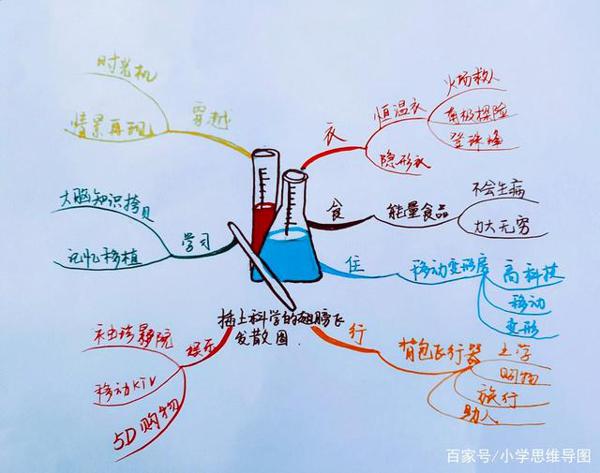 插上科学的翅膀飞
发散图.
衣
恒温衣
火场救人
南极探险
登珠峰
隐形衣
食
能量食品
不会生病
力大无穷
住
移动变形房
高科技
移动
变形
行
背包飞行器
上学
购物
旅行
助人
娱乐
袖珍影院
移动KTV
5D购物
学习
大脑知识拷贝
记忆移植
穿越
时光机
情景再现
百家号/小学思维导图